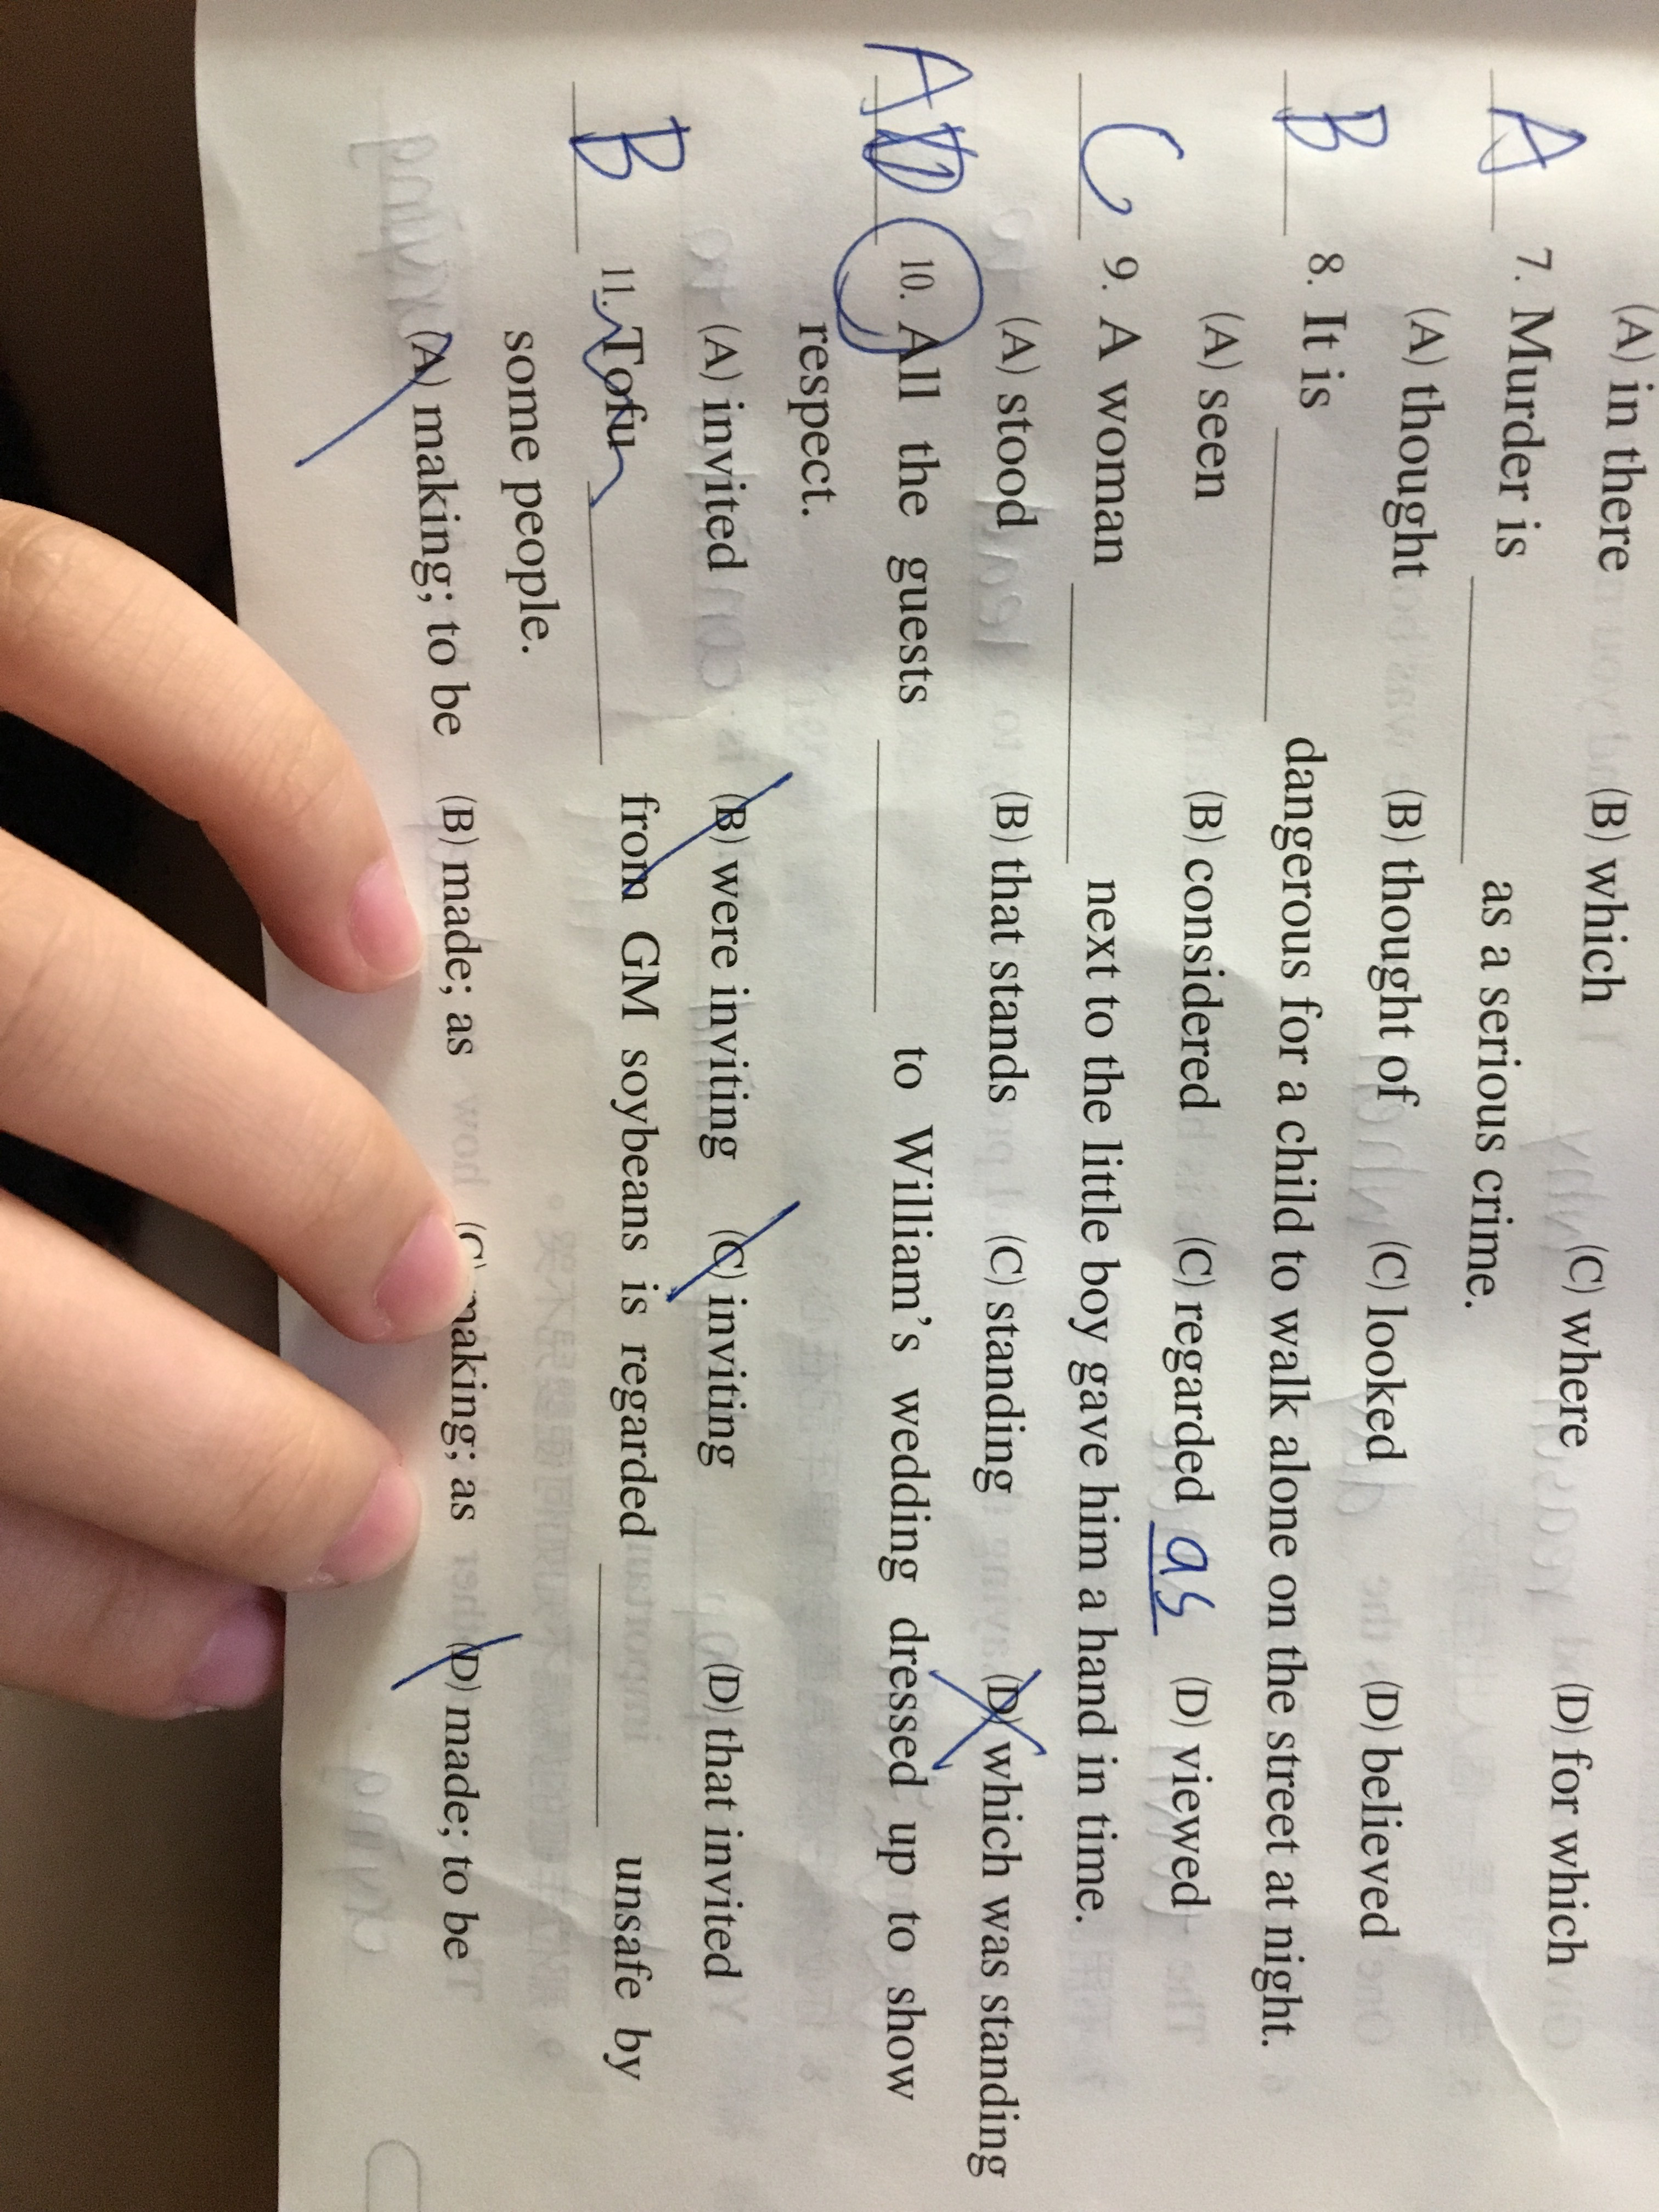 (A) in there (B) which (C) where (D) for which
A 7. Murder is ________ as a serious crime.
(A) thought (B) thought of (C) looked (D) believed
B 8. It is ________ dangerous for a child to walk alone on the street at night.
(A) seen (B) considered (C) regarded as (D) viewed
C 9. A woman ________ next to the little boy gave him a hand in time.
(A) stood (B) that stands (C) standing (D) which was standing
A 10. All the guests ________ to William's wedding dressed up to show
respect.
(A) invited (B) were inviting (C) inviting (D) that invited
B 11. Tofu ________ from GM soybeans is regarded ________ unsafe by
some people.
(A) making; to be (B) made; as (C) making; as (D) made; to be